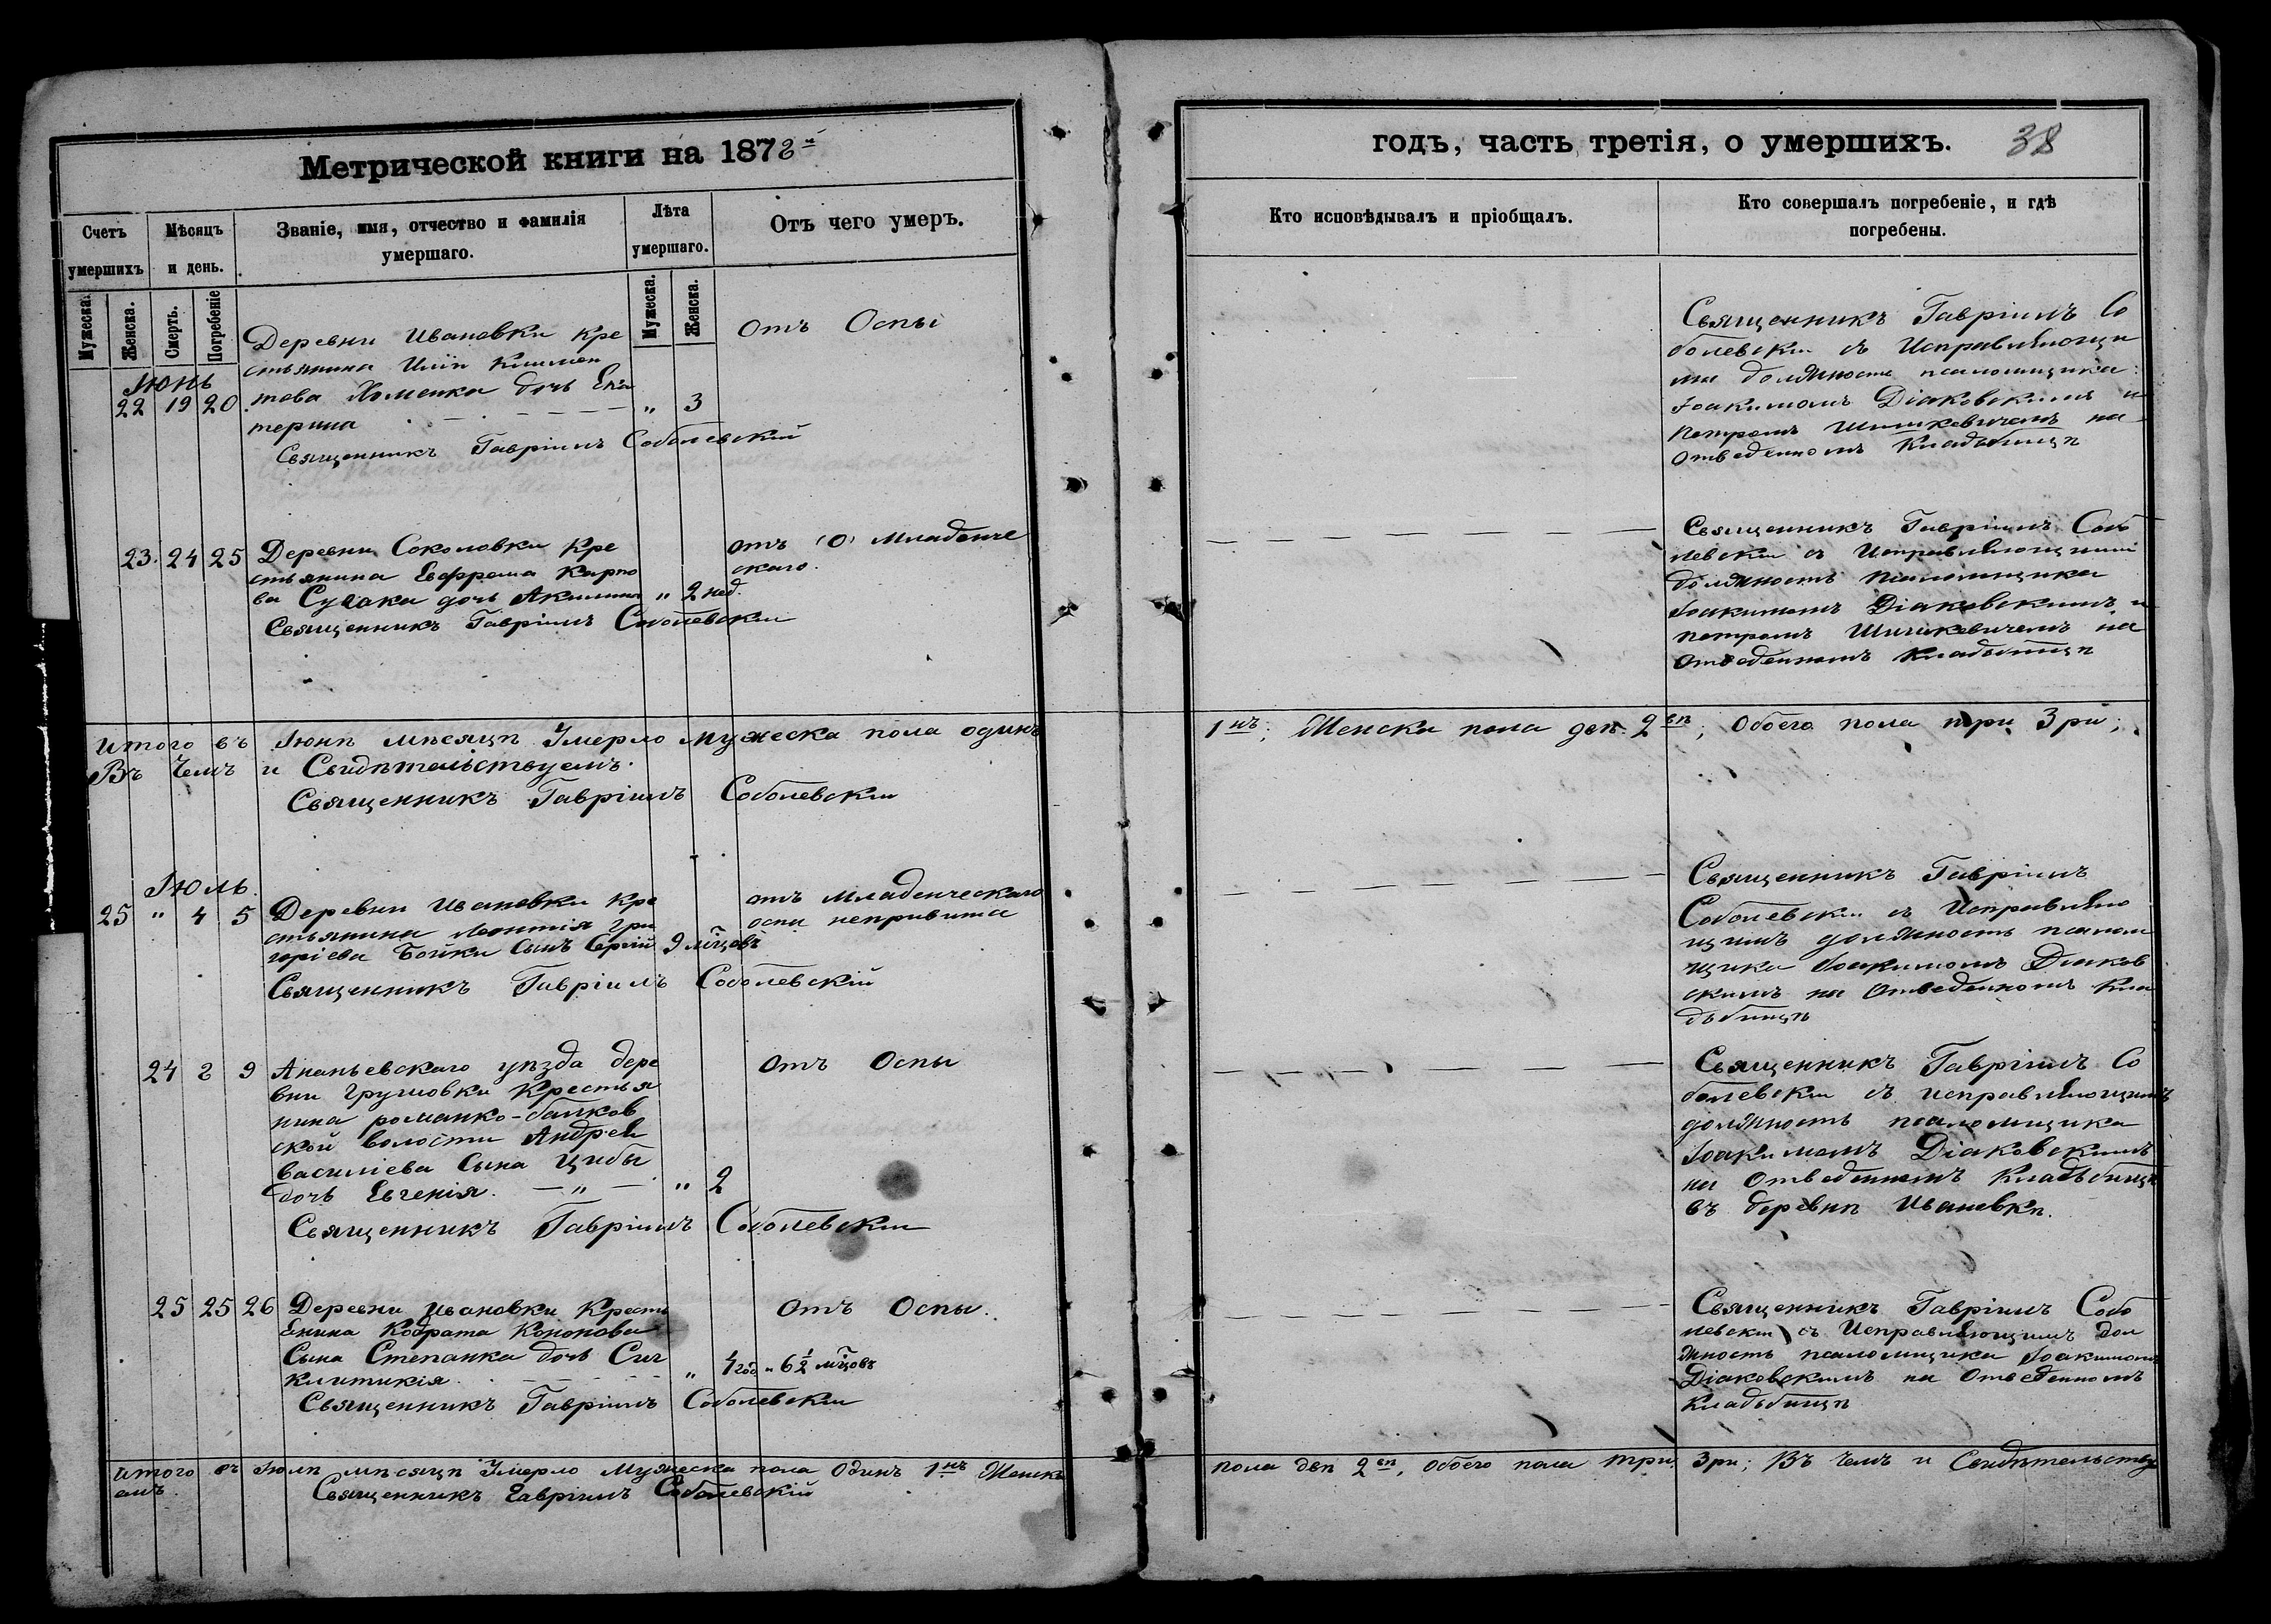 Метрической книги на 1878й
Счетъ умершихъ
Мѣсяцъ и день.
Званіе, имя, отчество и фамилія умершаго.
Лѣта умершаго.
Отъ чего умеръ.
Мужеска.
Женска.
Смерть.
Погребеніе
Мужеска.
Женска.
Іюнь
22 19 20
Деревни Ивановки Кре
стьянина Иліи Климен
това Хоменка дочь Ека
терина " 3
Отъ Оспы
Священникъ Гавріилъ Соболевскій
23. 24 25
Деревни Соколовки Кре
стьянина Евфрема Карпо
ва Сусака дочь Акилина " 2 нед.
отъ Младенче
скаго.
Священникъ Гавріилъ Соболевскій
Итого въ Іюнѣ мѣсяцѣ Умерло мужеска пола одинъ
Въ Чемъ и Свидѣтельствуемъ.
Священникъ Гавріилъ Соболевскій
Іюль.
25 " 4 5
Деревни Ивановки Кре
стьянина Леонтія Гри
горіева Бойки Сынъ Сергій 9 мѣцовъ
отъ Младенческаго
оспа непривита
Священникъ Гавріилъ Соболевскій
24 8 9
Ананьевскаго уѣзда дере
вни Грушовки Крестья
нина романко-балков
ской волости Андрея
василіева Сына Цибы
дочь Евгенія. — " — " 2
Отъ Оспы
Священникъ Гавріилъ Соболевскій
25 25 26
Деревни Ивановки Кресть
енина Кодрата Кононова
Сына Степанка дочь Сиг
клитикія. " 1 год " 6 1/2 мѣцовъ
Отъ Оспы.
Священникъ Гавріилъ Соболевскій
Итого въ Іюлѣ мѣсяцѣ Умерло Мужеска пола Одинъ 1нъ Женска
емъ.
Священникъ Гавріилъ Соболевскій
годъ, часть третія, о умершихъ. 38
Кто исповѣдывалъ и пріобщалъ.
Кто совершалъ погребеніе, и гдѣ погребены.
Священникъ Гавріилъ Со
болевскій съ Исправляющи
ми должность псаломщика
Іоакимомъ Діаковскимъ и
Петромъ Шишкевичемъ на
отведенномъ Кладбищѣ
Священникъ Гавріилъ Собо
левскій съ Исправляющими
должность псаломщика
Іоакимомъ Діаковскимъ и
Петромъ Шишкевичемъ на
Отведенномъ Кладбищѣ
1нъ; Женска пола двѣ. 2вѣ; Обоего пола три 3ри;
Священникъ Гавріилъ
Соболевскій съ Исправляю
щимъ должность псалом
щика Іоакимомъ Діаков
скимъ на Отведенномъ Кла
дьбищѣ
Священникъ Гавріилъ Со
болевскій съ исправляющимъ
должность псаломщика
Іоакимомъ Діаковскимъ
на Отведенномъ Кладьбищѣ
въ деревнѣ Ивановкѣ.
Священникъ Гавріилъ Собо
левскій съ Исправляющимъ дол
жность псаломщика Іоакимомъ
Діаковскимъ на Отведенномъ
Кладьбищѣ
пола двѣ 2вѣ, обоего пола три. 3ри; Въ Чемъ и Свидѣтельству